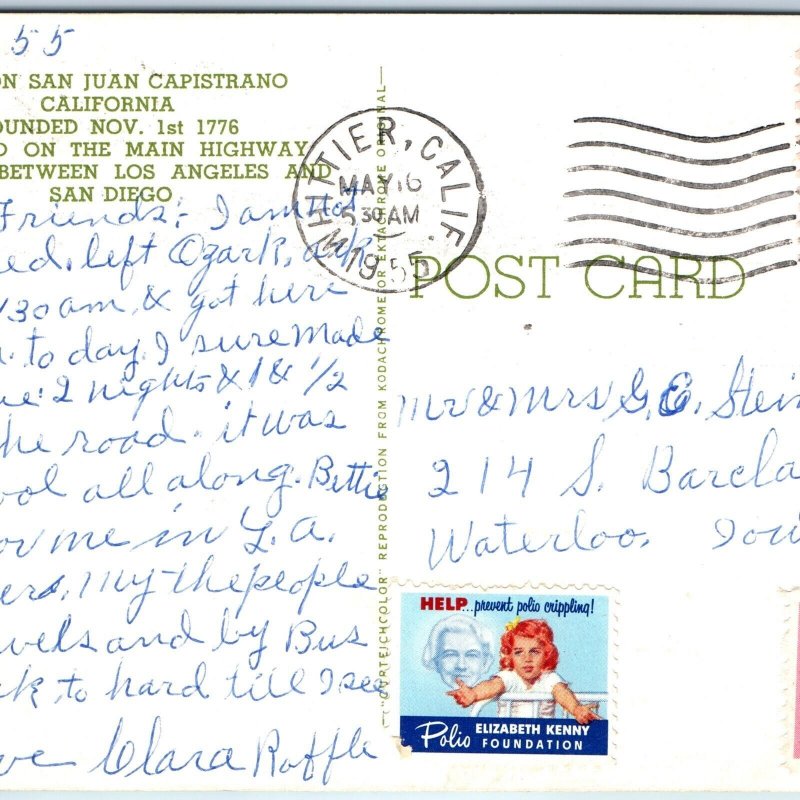 55
ON SAN JUAN CAPISTRANO
CALIFORNIA
OUNDED NOV. 1st 1776
D ON THE MAIN HIGHWAY
BETWEEN LOS ANGELES AND
SAN DIEGO
Friends:- I am not
ed. left Ozark, ark
30 am & got here
to day. I sure made
2 nights & 1 & 1/2
he road. it was
ool all along. Bettie
or me in L.A.
ers. My the people
vels and by Bus
k to hard till I see
ve Clara Roffle
"CURTEICHCOLOR" REPRODUCTION FROM KODACHROME OR EKTACHROME ORIGINAL
WHITTIER, CALIF.
MAY 16
5 30 AM
1955
POST CARD
Mr & Mrs G.E. Stein
214 S. Barcla
Waterloo, Iow
HELP...prevent polio crippling!
Polio ELIZABETH KENNY
FOUNDATION